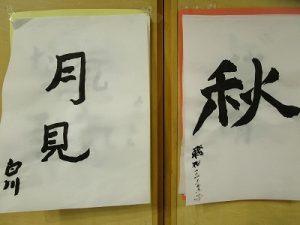 月見
白川
秋